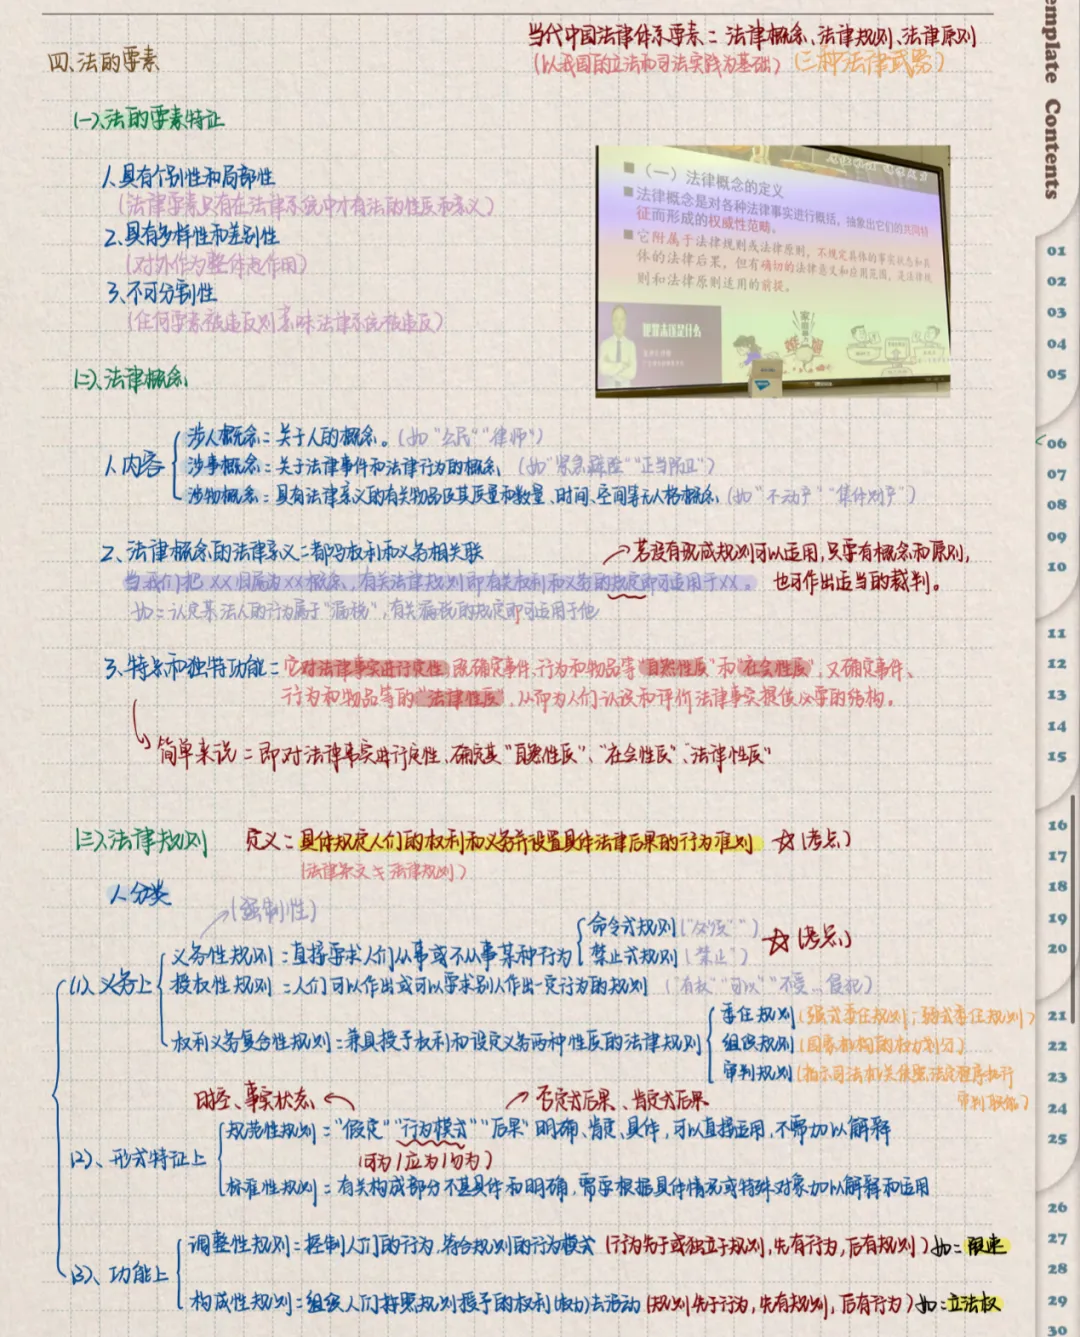 当代中国法律体系要素：法律概念、法律规则、法律原则
四、法的要素
(以我国的立法和司法实践为基础) (三种法律武器)
(一)、法的要素特征
1.具有个别性和局部性
(法律要素只有在法律系统中才有法的性质和意义)
2.具有多样性和差别性
(对外作为整体起作用)
3.不可分割性
(任何要素被违反则意味法律系统被违反)
■ (一)法律概念的定义
■ 法律概念是对各种法律事实进行概括，抽象出它们的共同特
征而形成的权威性范畴。
■ 它附属于法律规则或法律原则，不规定具体的事实状态和具
体的法律后果，但有确切的法律意义和应用范围，是法律规
则和法律原则适用的前提。
犯罪未遂是什么
(二)、法律概念
1.内容
涉人概念：关于人的概念。(如“公民”“律师”)
涉事概念：关于法律事件和法律行为的概念 (如“紧急避险”“正当防卫”)
涉物概念：具有法律意义的有关物品及其质量和数量、时间、空间等无人格概念 (如“不动产”“集体财产”)
2、法律概念的法律意义：都与权利和义务相关联
若没有现成规则可以适用，只要有概念和原则，
也可作出适当的裁判。
当我们把XX归属为XX概念，有关法律规则即有关权利和义务的规定即可适用于XX。
如：认定某法人的行为属于“漏税”，有关漏税的规定即可适用于他
3、特点和独特功能：它对法律事实进行定性，既确定事件、行为和物品等“自然性质”和“社会性质”，又确定事件、
行为和物品等的“法律性质”，从而为人们认识和评价法律事实提供必要的结构。
简单来说：即对法律事实进行定性、确定其“自然性质”、“社会性质”、“法律性质”
(三)、法律规则 定义：具体规定人们的权利和义务并设置具体法律后果的行为准则 ☆(考点)
(法律条文≠法律规则)
1.分类
(强制性)
(1)、义务上
义务性规则：直接要求人们从事或不从事某种行为
命令式规则 (“必须”)
禁止式规则 (“禁止”)
☆(考点)
授权性规则：人们可以作出或可以要求别人作出一定行为的规则 (“有权”“可以”“不受…侵犯)
权利义务复合性规则：兼具授予权利和设定义务两种性质的法律规则
委任规则 (强式委任规则；弱式委任规则)
组织规则 (国家机构的权力划分)
审判规则 (指示司法机关依照法定程序执行
审判职能)
时空、事实状态
否定式后果、肯定式后果
(2)、形式特征上
规范性规则：“假定”“行为模式”“后果”明确、肯定、具体，可以直接适用，不需加以解释
(可为/应为/勿为)
标准性规则：有关构成部分不甚具体和明确，需要根据具体情况或特殊对象加以解释和适用
(3)、功能上
调整性规则：控制人们的行为，符合规则的行为模式 (行为先于或独立于规则，先有行为，后有规则) 如：限速
构成性规则：组织人们按照规则授予的权利(权力)去活动 (规则先于行为，先有规则，后有行为) 如：立法权
Template Contents
01
02
03
04
05
06
07
08
09
10
11
12
13
14
15
16
17
18
19
20
21
22
23
24
25
26
27
28
29
30